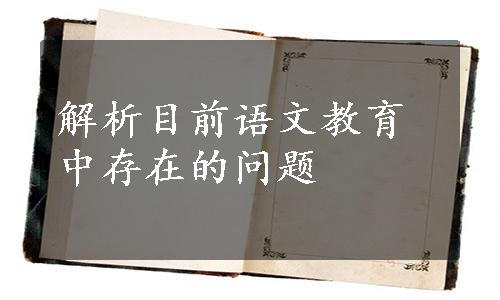 解析目前语文教育
中存在的问题